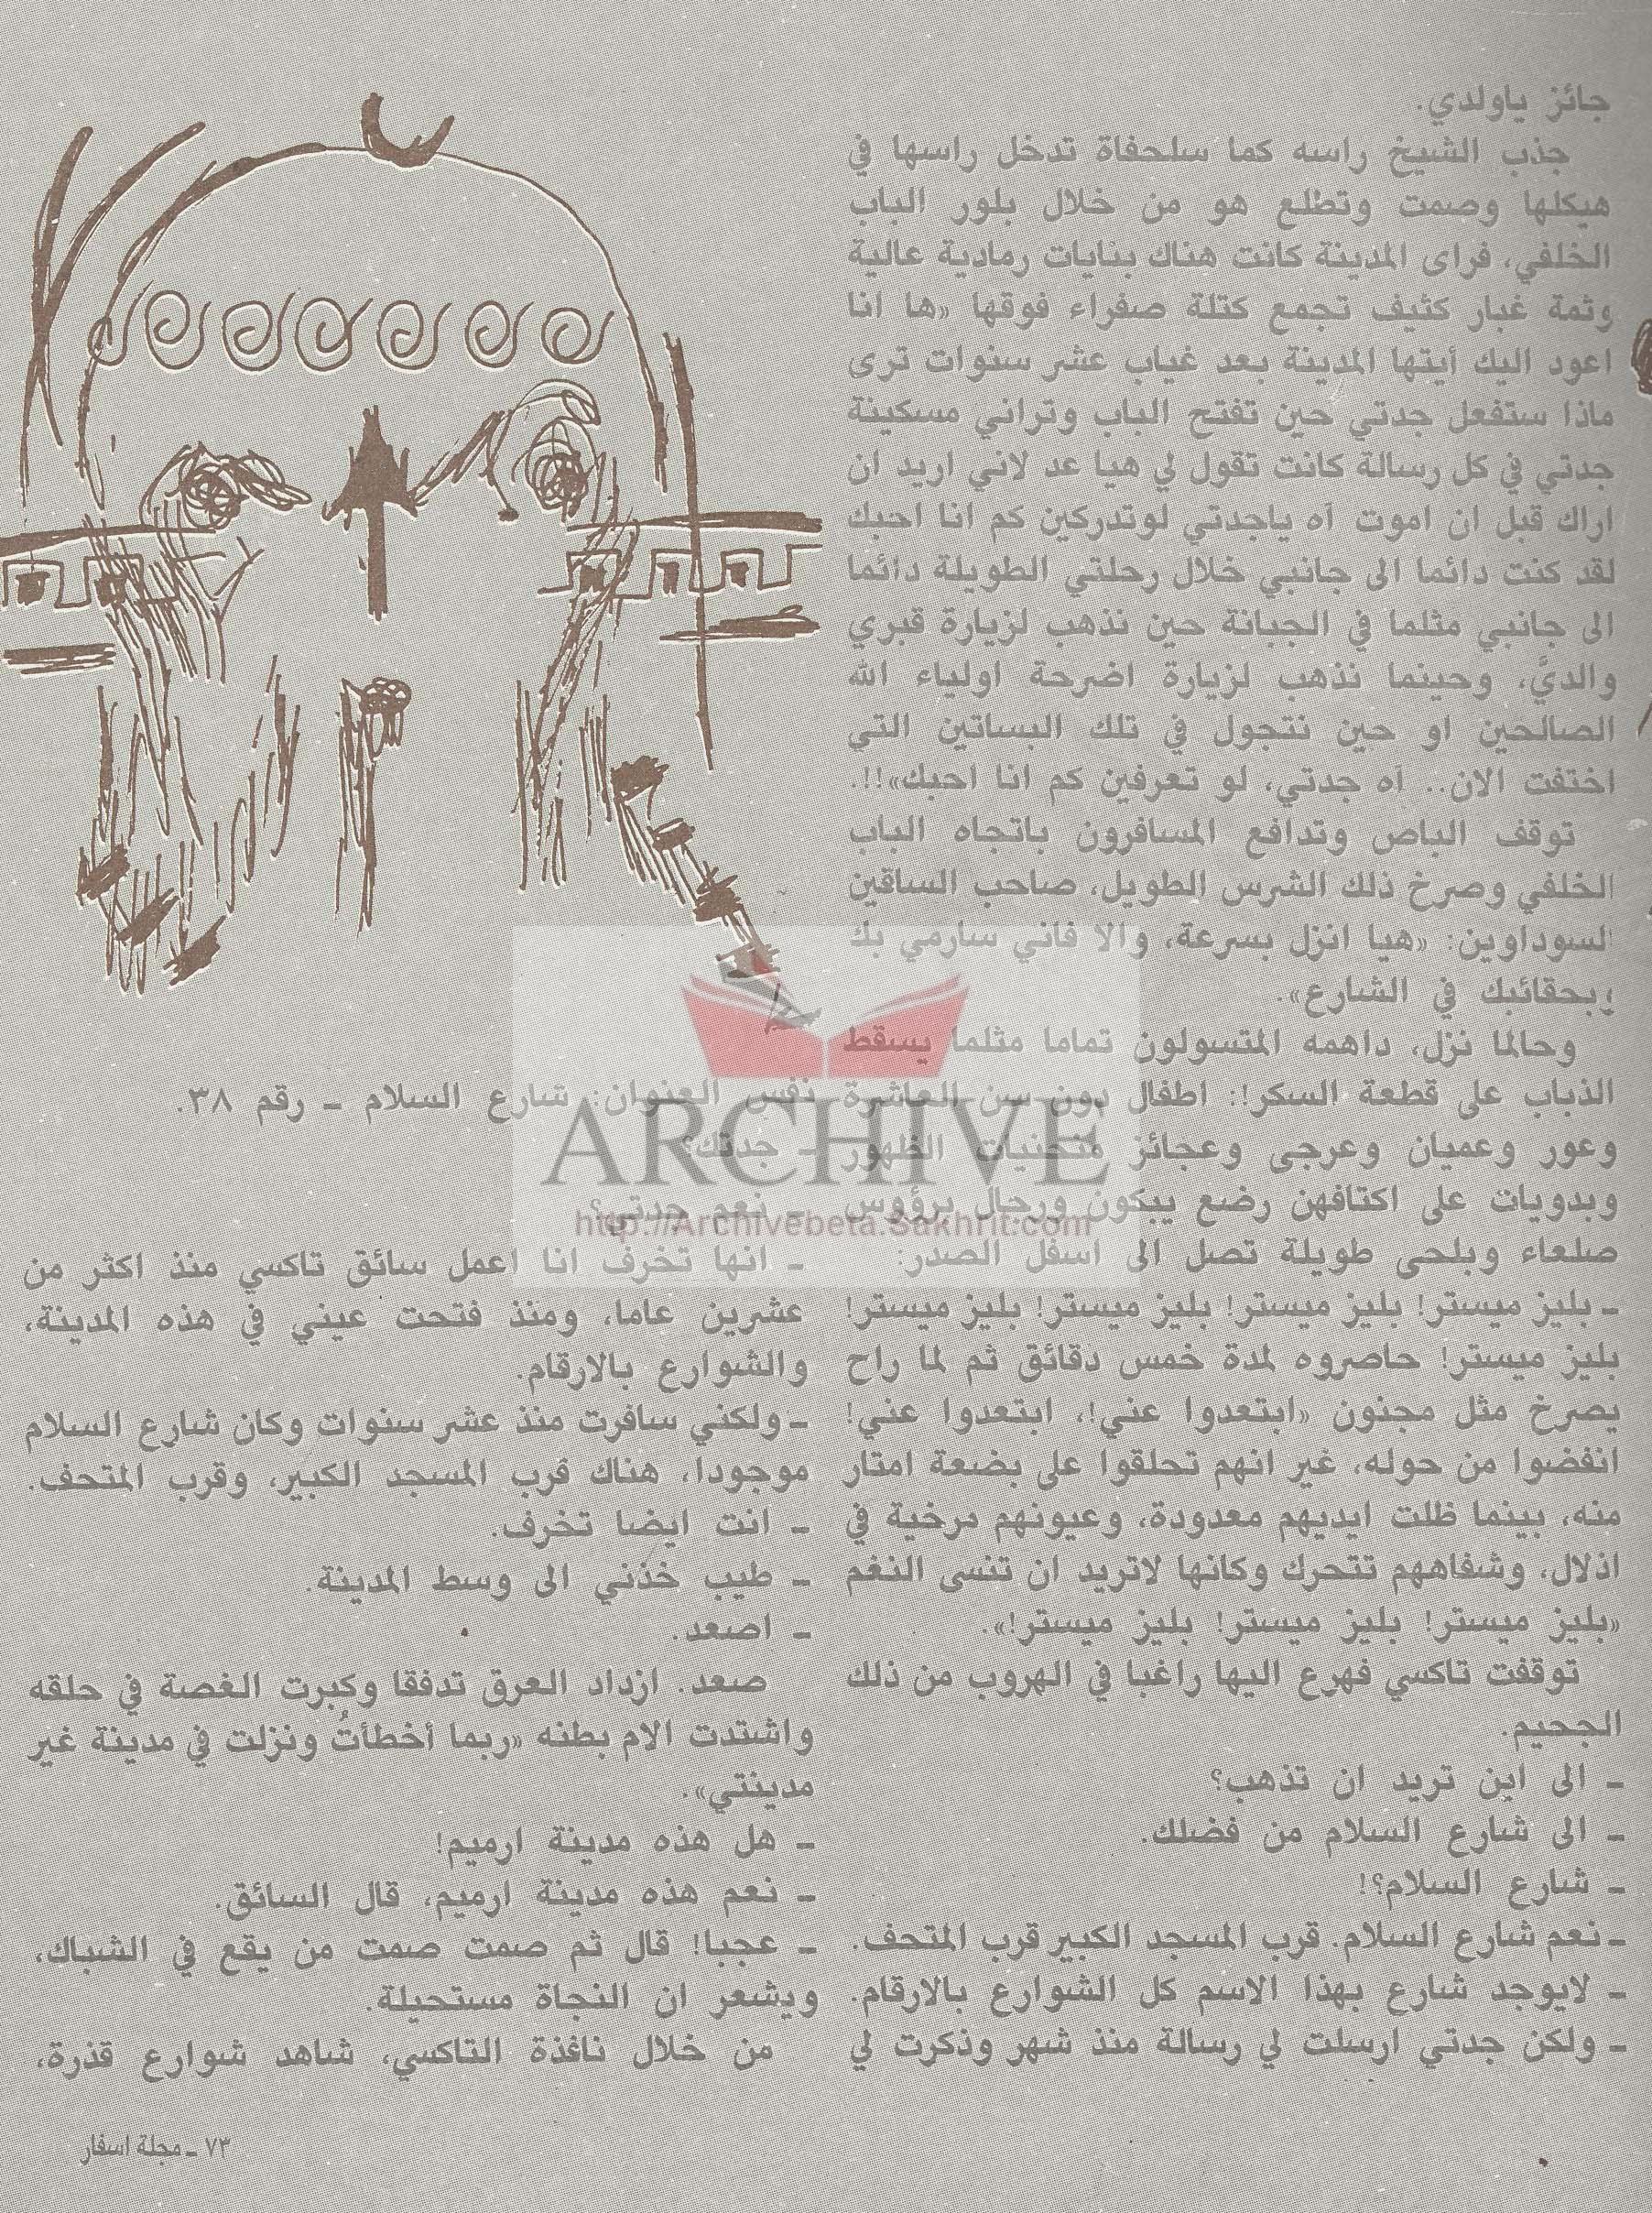 جائز ياولدي.
جذب الشيخ راسه كما سلحفاة تدخل راسها في
هيكلها وصمت وتطلع هو من خلال بلور الباب
الخلفي، فراى المدينة كانت هناك بنايات رمادية عالية
وثمة غبار كثيف تجمع كتلة صفراء فوقها «ها انا
اعود اليك أيتها المدينة بعد غياب عشر سنوات ترى
ماذا ستفعل جدتي حين تفتح الباب وتراني مسكينة
جدتي في كل رسالة كانت تقول لي هيا عد لاني اريد ان
اراك قبل ان اموت آه ياجدتي لوتدركين كم انا احبك
لقد كنت دائما الى جانبي خلال رحلتي الطويلة دائما
الى جانبي مثلما في الجبانة حين نذهب لزيارة قبري
والديَّ، وحينما نذهب لزيارة اضرحة اولياء الله
الصالحين او حين نتجول في تلك البساتين التي
اختفت الان.. آه جدتي، لو تعرفين كم انا احبك»!!.
توقف الباص وتدافع المسافرون باتجاه الباب
الخلفي وصرخ ذلك الشرس الطويل، صاحب الساقين
لسوداوين: «هيا انزل بسرعة، والا فاني سارمي بك
وبحقائبك في الشارع».
وحالما نزل، داهمه المتسولون تماما مثلما يسقط
الذباب على قطعة السكر!: اطفال دون سن العاشرة
وعور وعميان وعرجى وعجائز منحنيات الظهور
وبدويات على اكتافهن رضع يبكون ورجال برؤوس
صلعاء وبلحى طويلة تصل الى اسفل الصدر:
ـ بليز ميستر! بليز ميستر! بليز ميستر! بليز ميستر!
بليز ميستر! حاصروه لمدة خمس دقائق ثم لما راح
يصرخ مثل مجنون «ابتعدوا عني!، ابتعدوا عني!
انفضوا من حوله، غير انهم تحلقوا على بضعة امتار
منه، بينما ظلت ايديهم معدودة، وعيونهم مرخية في
اذلال، وشفاههم تتحرك وكانها لاتريد ان تنسى النغم
«بليز ميستر! بليز ميستر! بليز ميستر!».
توقفت تاكسي فهرع اليها راغبا في الهروب من ذلك
الجحيم.
ـ الى اين تريد ان تذهب؟
ـ الى شارع السلام من فضلك.
ـ شارع السلام؟!
ـ نعم شارع السلام. قرب المسجد الكبير قرب المتحف.
ـ لايوجد شارع بهذا الاسم كل الشوارع بالارقام.
ـ ولكن جدتي ارسلت لي رسالة منذ شهر وذكرت لي
نفس العنوان: شارع السلام ـ رقم ٣٨.
ـ جدتك؟
ـ نعم جدتي؟
ـ انها تخرف انا اعمل سائق تاكسي منذ اكثر من
عشرين عاما، ومنذ فتحت عيني في هذه المدينة،
والشوارع بالارقام.
ـ ولكني سافرت منذ عشر سنوات وكان شارع السلام
موجودا، هناك قرب المسجد الكبير، وقرب المتحف.
ـ انت ايضا تخرف.
ـ طيب خذني الى وسط المدينة.
ـ اصعد.
صعد. ازداد العرق تدفقا وكبرت الغصة في حلقه
واشتدت الام بطنه «ربما أخطأتُ ونزلت في مدينة غير
مدينتي».
ـ هل هذه مدينة ارميم!
ـ نعم هذه مدينة ارميم، قال السائق.
ـ عجبا! قال ثم صمت صمت من يقع في الشباك،
ويشعر ان النجاة مستحيلة.
من خلال نافذة التاكسي، شاهد شوارع قذرة،
٧٣ ـ مجلة اسفار
ARCHIVE
http://Archivebeta.Sakhrit.com